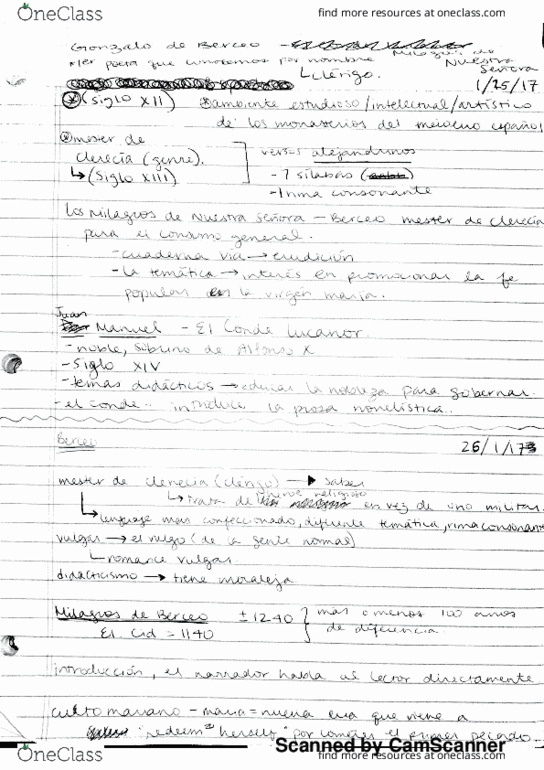 OneClass find more resources at oneclass.com
Gonzalo de Berceo - Milagros de
poeta que conocemos por nombre Nuestra
Clérigo. Señora
1/25/17
(Siglo XII) ambiente estudioso/intelectual/artístico
de los monasterios del español
mester de
clerecía (genre). versos alejandrinos
(Siglo XIII) - 7 sílabas
- rima consonante
Los Milagros de Nuestra Señora - Berceo mester de clerecía
para el consumo general.
- cuaderna vía → erudición
- la temática → interés en promocionar la fe
popular en la virgen maría.
Juan
Manuel - El Conde Lucanor
- noble, sobrino de Alfonso X
- Siglo XIV
- temas didácticos → educar la nobleza para gobernar.
- el conde.. introduce la prosa novelística..
Berceo 26/1/17
mester de clerecía (clérigo) → saber
trata de héroe religioso en vez de uno militar.
lenguaje mas confeccionado, diferente temática, rima consonante
vulgar → el vulgo (de la gente normal)
romance vulgar
didacticismo → tiene moraleja
Milagros de Berceo ± 1240 más o menos 100 años
El Cid = 1140 de diferencia.
introducción, el narrador habla al lector directamente
culto mariano - maria = nueva eva que viene a
"redeem herself" por el primer pecado.
Scanned by CamScanner
OneClass find more resources at oneclass.com